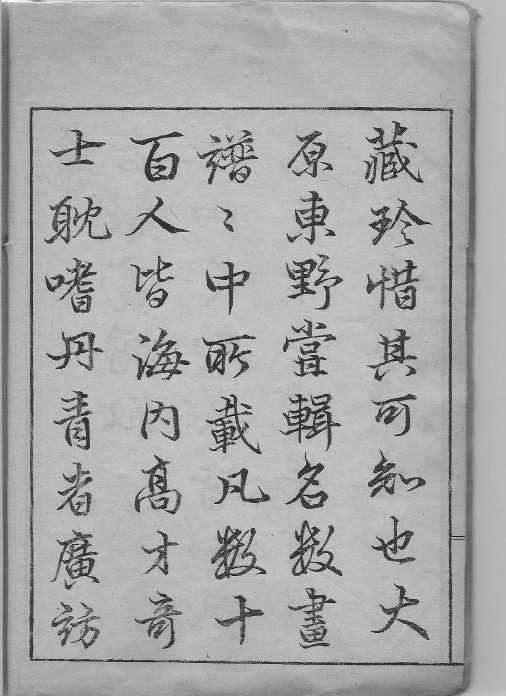 藏珍惜其可知也大
原東野嘗輯名數畫
譜〻中所載凡數十
百人皆海内高才奇
士耽嗜丹青者廣訪